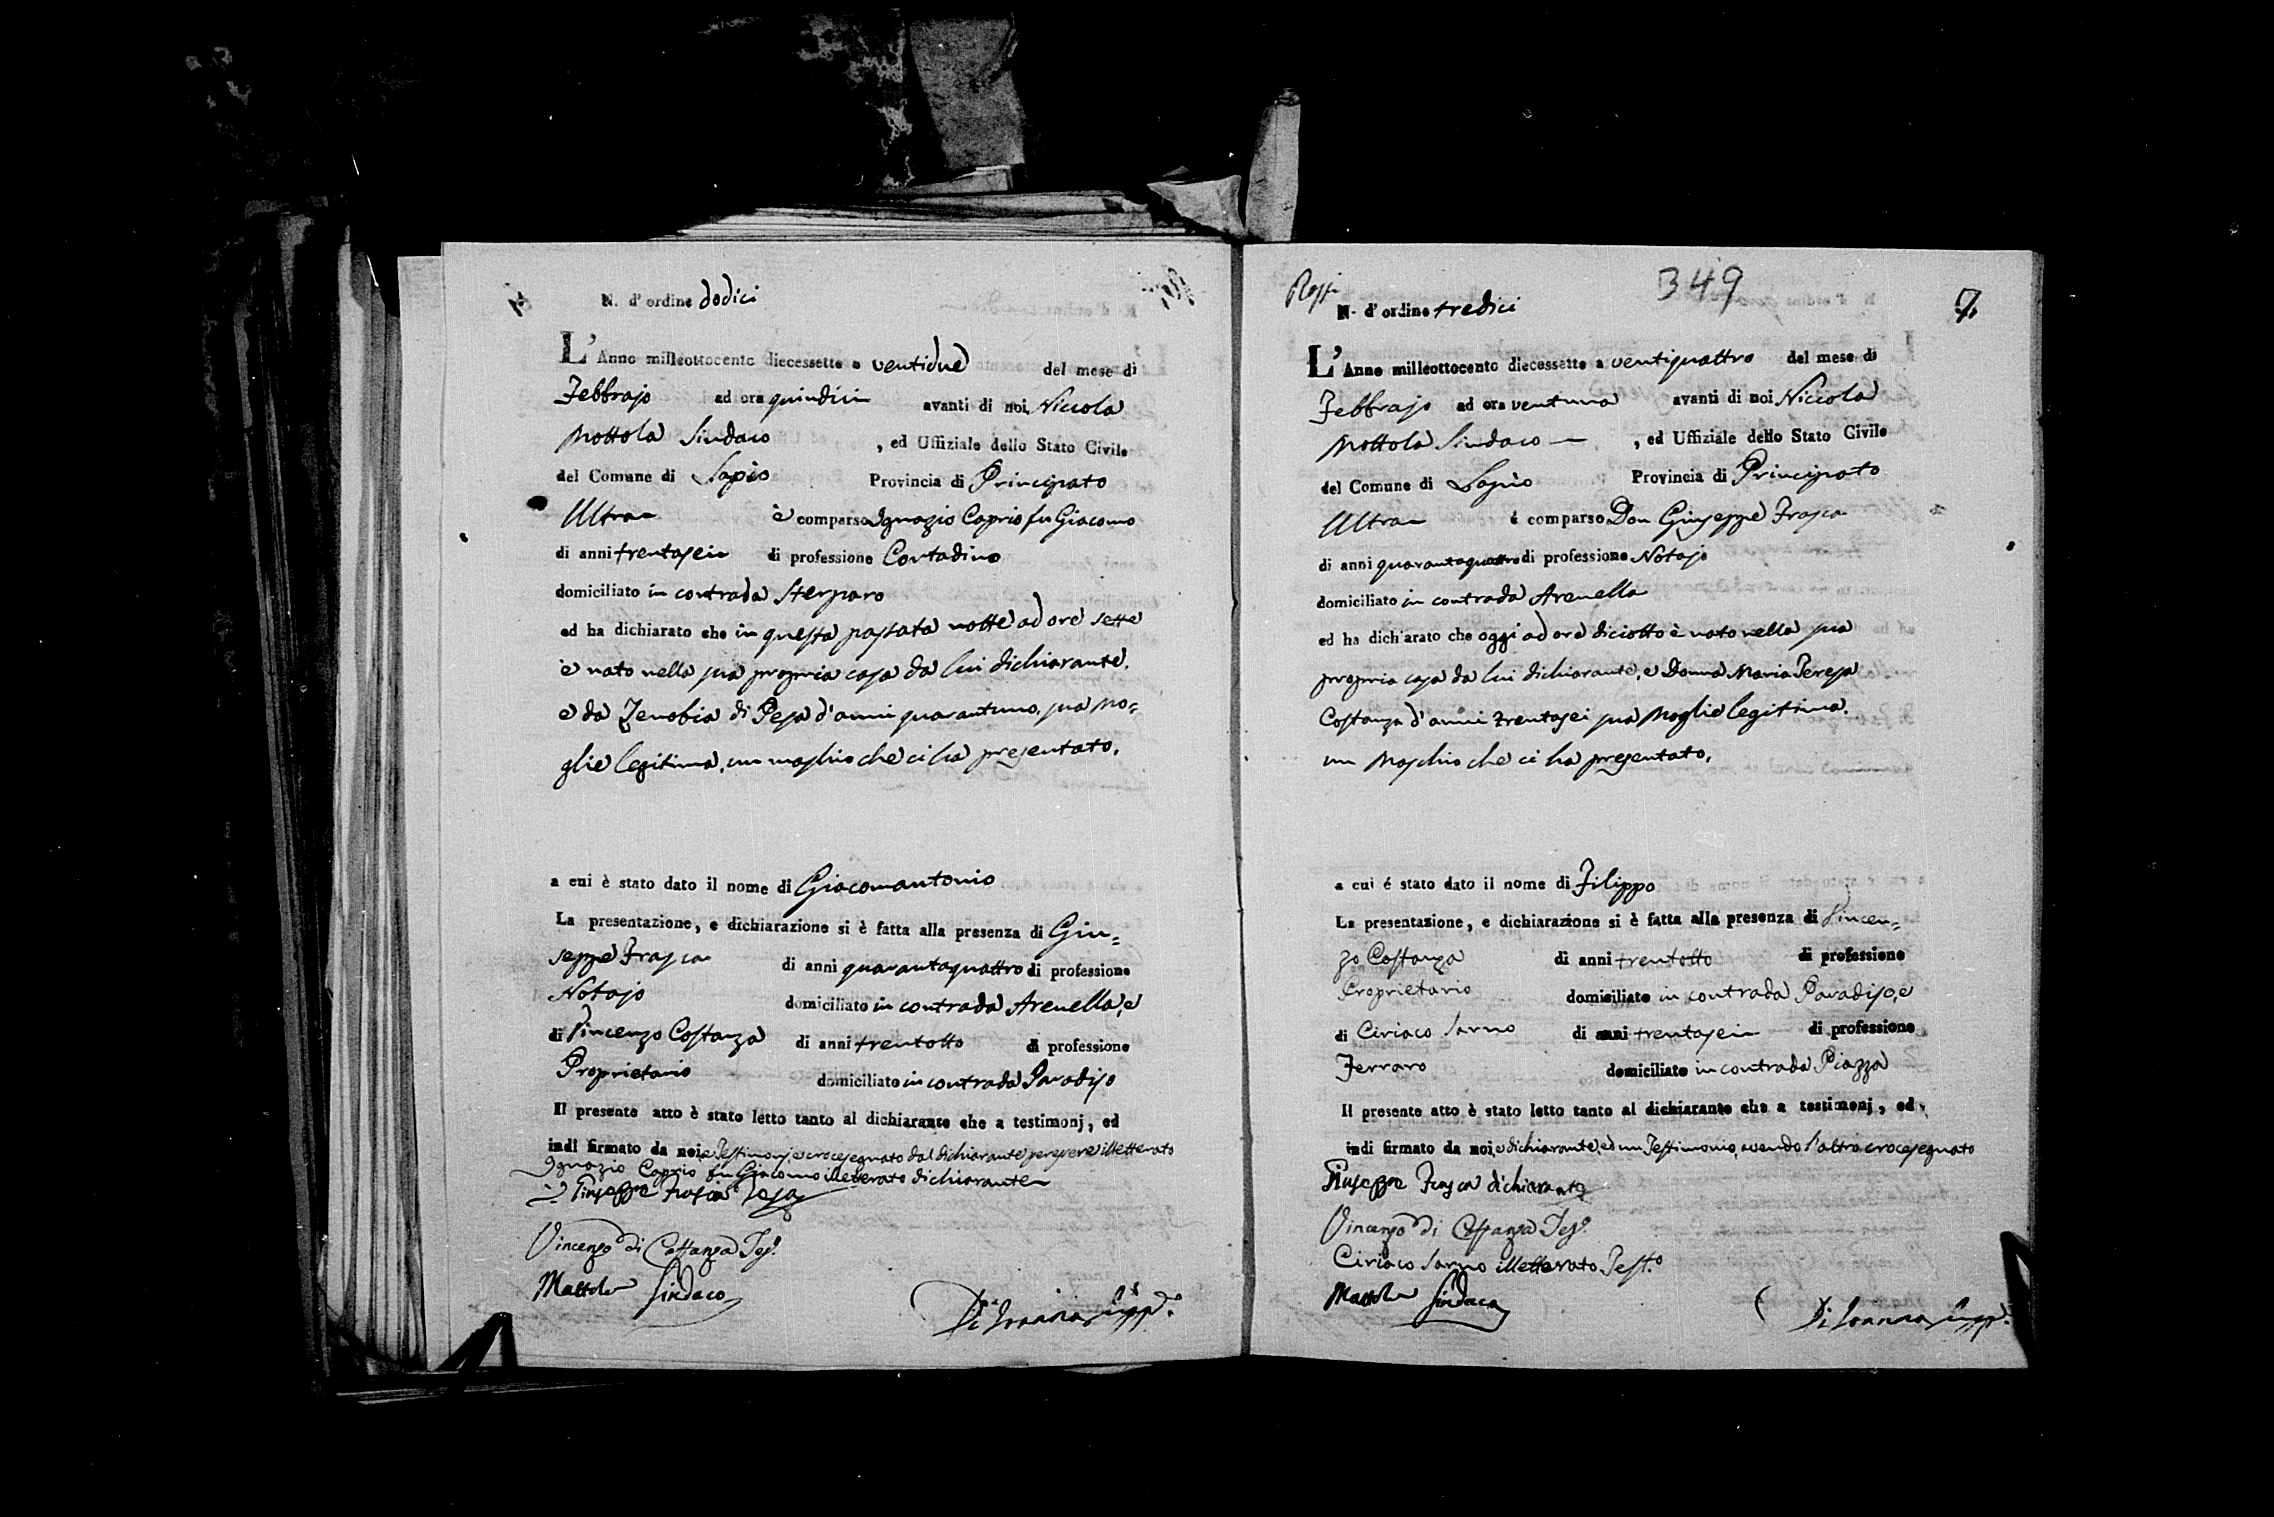 N. d' ordine dodici
L' Anno milleottocento diecessette a ventidue del mese di
Febbrajo ad ora quindici avanti di noi Niccola
Mottola Sindaco , ed Uffiziale dello Stato Civile
del Comune di Lapio Provincia di Principato
Ultra è comparso Ignazio Caprio fu Giacomo
di anni trentasei di professione Contadino
domiciliato in contrada Sterparo
ed ha dichiarato che in questa passata notte ad ore sette
è nato nella sua propria casa da lui dichiarante,
e da Zenobia di Pesa d'anni quarantuno, sua mo=
glie legitima, un maschio che ci ha presentato.
a cui è stato dato il nome di Giacomantonio
La presentazione, e dichiarazione si è fatta alla presenza di Giu=
seppe Frasca di anni quarantaquattro di professione
Notajo domiciliato in contrada Arenella, e
di Vincenzo Costanza di anni trentotto di professione
Proprietario domiciliato in contrada Paradiso
Il presente atto è stato letto tanto al dichiarante che a testimonj, ed
indi firmato da noi, e Testimonj, e crocesegnato dal dichiarante per essere illetterato
Ignazio Caprio fu Giacomo illetterato dichiarante
Giuseppe Frasca
Vincenzo di Costanza Tes.
Mottola Sindaco
Rossi
349
7.
N. d' ordine tredici
L' Anno milleottocento diecessette a ventiquattro del mese di
Febbrajo ad ora ventuna avanti di noi Niccola
Mottola Sindaco , ed Uffiziale dello Stato Civile
del Comune di Lapio Provincia di Principato
Ultra é comparso Don Giuseppe Frasca
di anni quarantaquattro di professione Notajo
domiciliato in contrada Arenella
ed ha dichiarato che oggi ad ore diciotto è nato nella sua
propria casa da lui dichiarante, e Donna Maria Teresa
Costanza d'anni trentasei sua Moglie legitima.
un Maschio che ci ha presentato.
a cui é stato dato il nome di Filippo
La presentazione, e dichiarazione si è fatta alla presenza di Vincen=
zo Costanza di anni trentotto di professione
Proprietario domiciliato in contrada Paradiso, e
di Ciriaco Sarno di anni trentasei di professione
Ferraro domiciliato in contrada Piazza
Il presente atto è stato letto tanto al dichiarante che a testimonj, ed
indi firmato da noi, e dichiarante, ed un Testimonio, avendo l'altro crocesegnato
Giuseppe Frasca dichiarante
Vincenzo di Costanza Tes.
Ciriaco Sarno illetterato Test.o
Mottola Sindaco